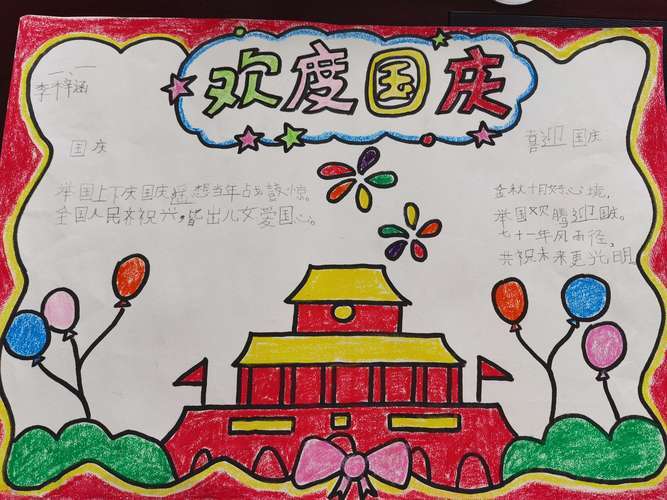 欢度国庆
一、一
李梓涵
国庆
举国上下庆国庆，想当年占
全国人民齐祝兴，皆出儿女爱国心。
喜迎国庆
金秋十月好心境，
举国欢腾迎国庆。
七十一年风雨径，
共祝未来更光明